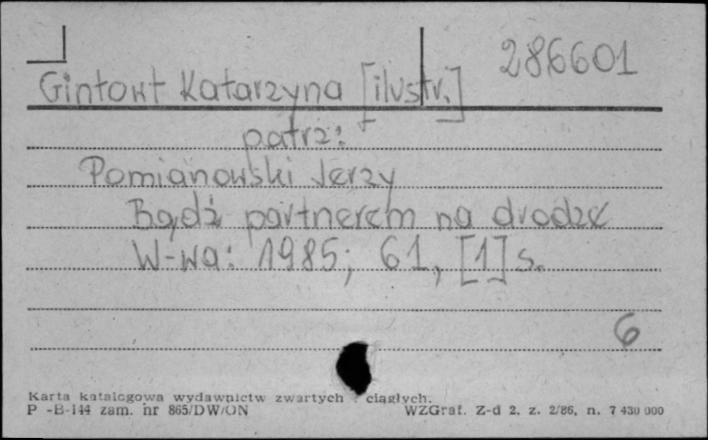 286601
Gintowt Katarzyna [ilustr.]
patrz:
Pomianowski Jerzy
Bądź partnerem na drodze
W-wa: 1985; 61, [1] s.
6
Karta katalogowa wydawnictw zwartych i ciągłych.
P -B-144 zam. nr 865/DW/ON WZGraf. Z-d 2, z. 2/86, n. 7 430 000